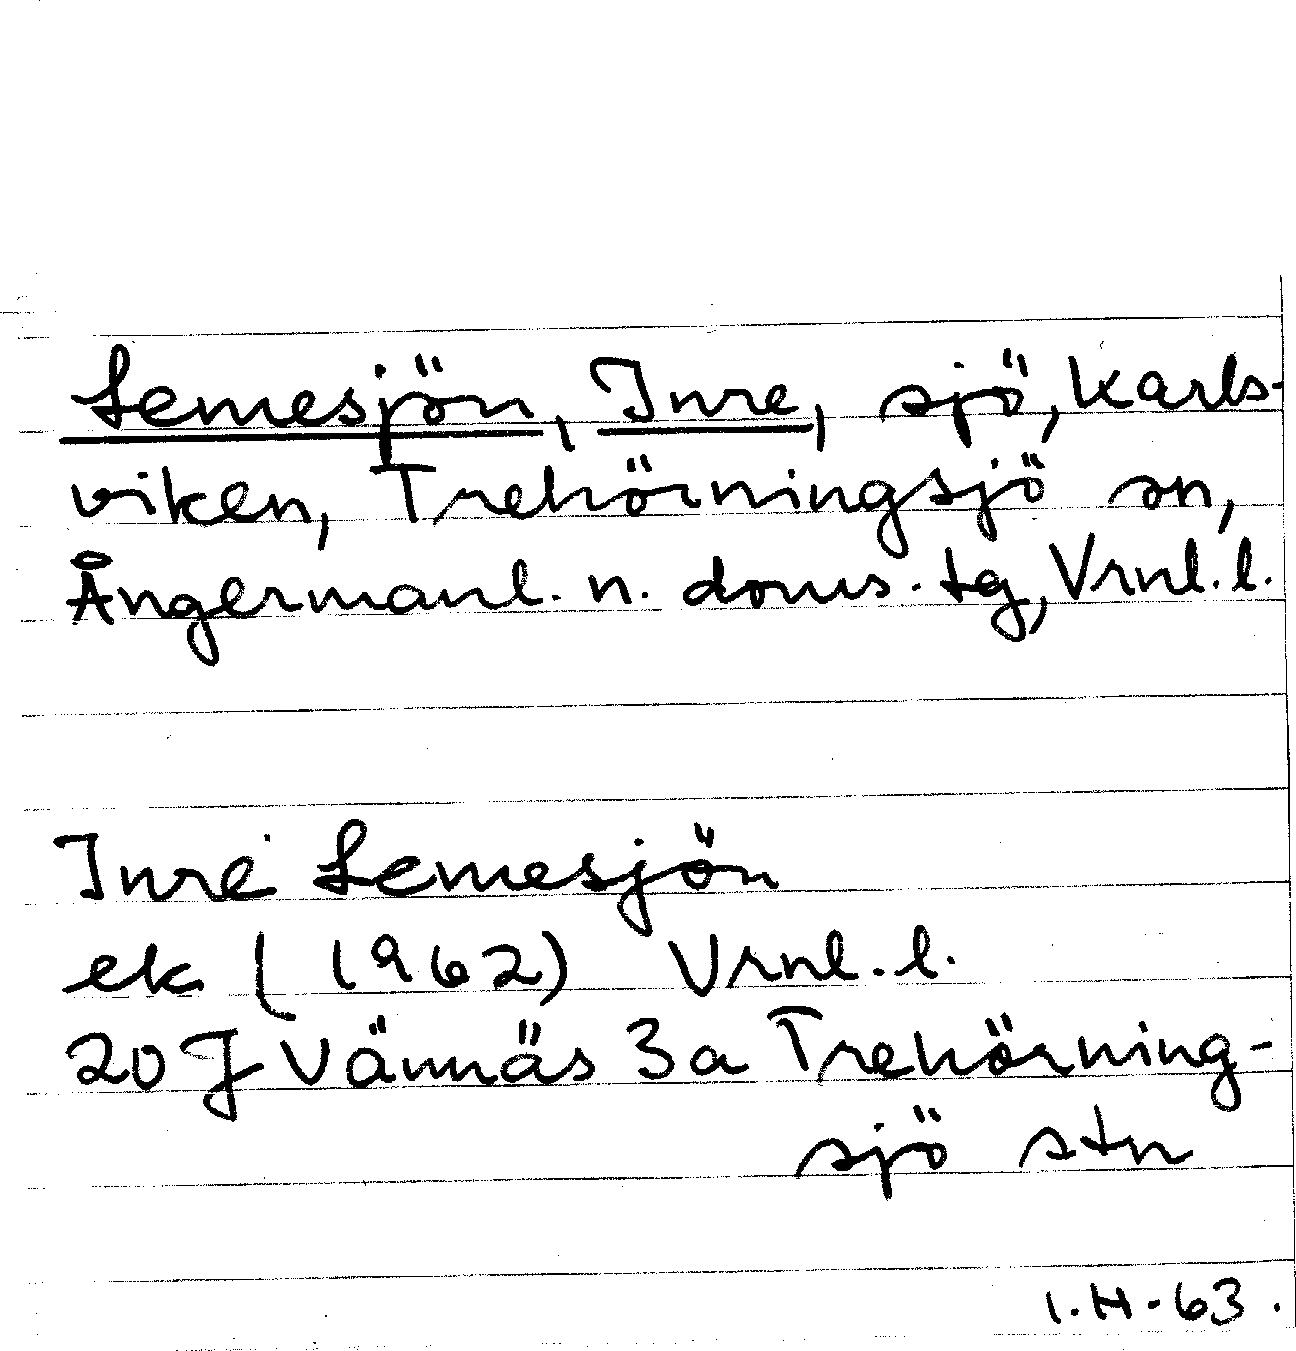 Lemesjön, Inre, sjö, Karls-
viken, Trehörningsjö sn,
Ångermanl. n. doms. tg, Vrnl. l.
Inre Lemesjön
ek (1962) Vrnl. l.
20 J Vännäs 3a Trehörning-
sjö stn
I.H-63.